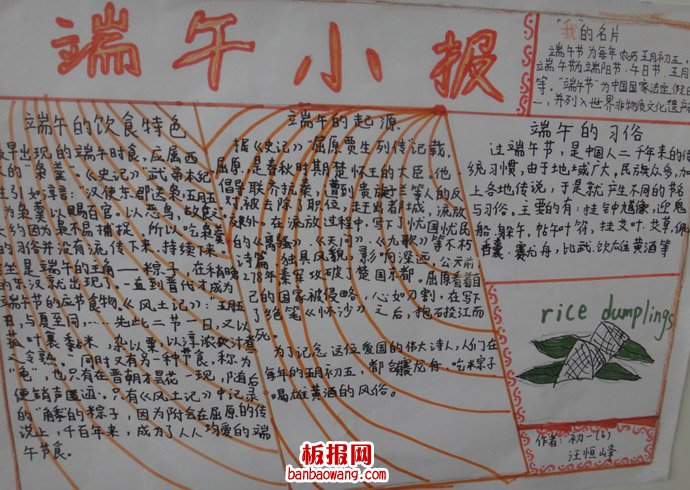 端午小报
"我"的名片
端午节为每年农历五月初五,
端午节为端阳节、午日节、五月
等,"端午节"为中国国家法定假日
一,并列入世界非物质文化遗产
端午的饮食特色
最早出现的端午时食,应属西
的"枭羹"。《史记》"武帝本纪
注引如淳言:"汉使东郡送枭,五月五
为枭羹以赐百官。以恶鸟,故食之"
大约因为枭不易捕捉,所以吃枭羹
的习俗并没有流传下来,持续下来
端午的主角——粽子,在稍晚
的东汉就出现了。一直到晋代才成为
端午节的应节食物。《风土记》:
与夏至同,……先此二节一日,又以
菰叶裹黏米,杂以粟,以淳浓灰汁煮
令熟。"同时又有另一种节食,称为
"龟",也只有在晋朝才昙花一现,随后
便销声匿迹。只有《风土记》中记录
的"角黍"的粽子,因为附会在屈原的传
说上,千百年来,成为了人人均爱的端
午节食。
端午的起源
据《史记》"屈原贾生列传记载,
屈原,是春秋时期楚怀王的大臣。他
倡导联齐抗秦,遭到贵族子兰等人的反
对,被去除了职位,赶出都城,流放
在流放过程中,写下忧国忧民
的《离骚》、《天问》、《九歌》等不朽
诗篇,独具风貌,影响深远。公元前
278年秦军攻破了楚国京都。屈原看着自
己的国家被侵略,心如刀割,在写下
了绝笔《怀沙》之后,抱石投江而
死。
为了记念这位爱国的伟大诗人,人们在
每年的五月初五,都会赛龙舟、吃米粽子
喝雄黄酒的风俗。
端午的习俗
过端午节,是中国人二千年来的传
统习惯,由于地域广大,民族众多,加
上各地传说,于是就产生不同的节名
与习俗。主要的有:挂钟馗像,迎鬼
船、躲午、帖午叶符,挂艾叶、艾草,佩
香囊,赛龙舟,比武,饮雄黄酒等
rice dumplings
作者:初一(6)
汪恒峰
板报网
banbaowang.com